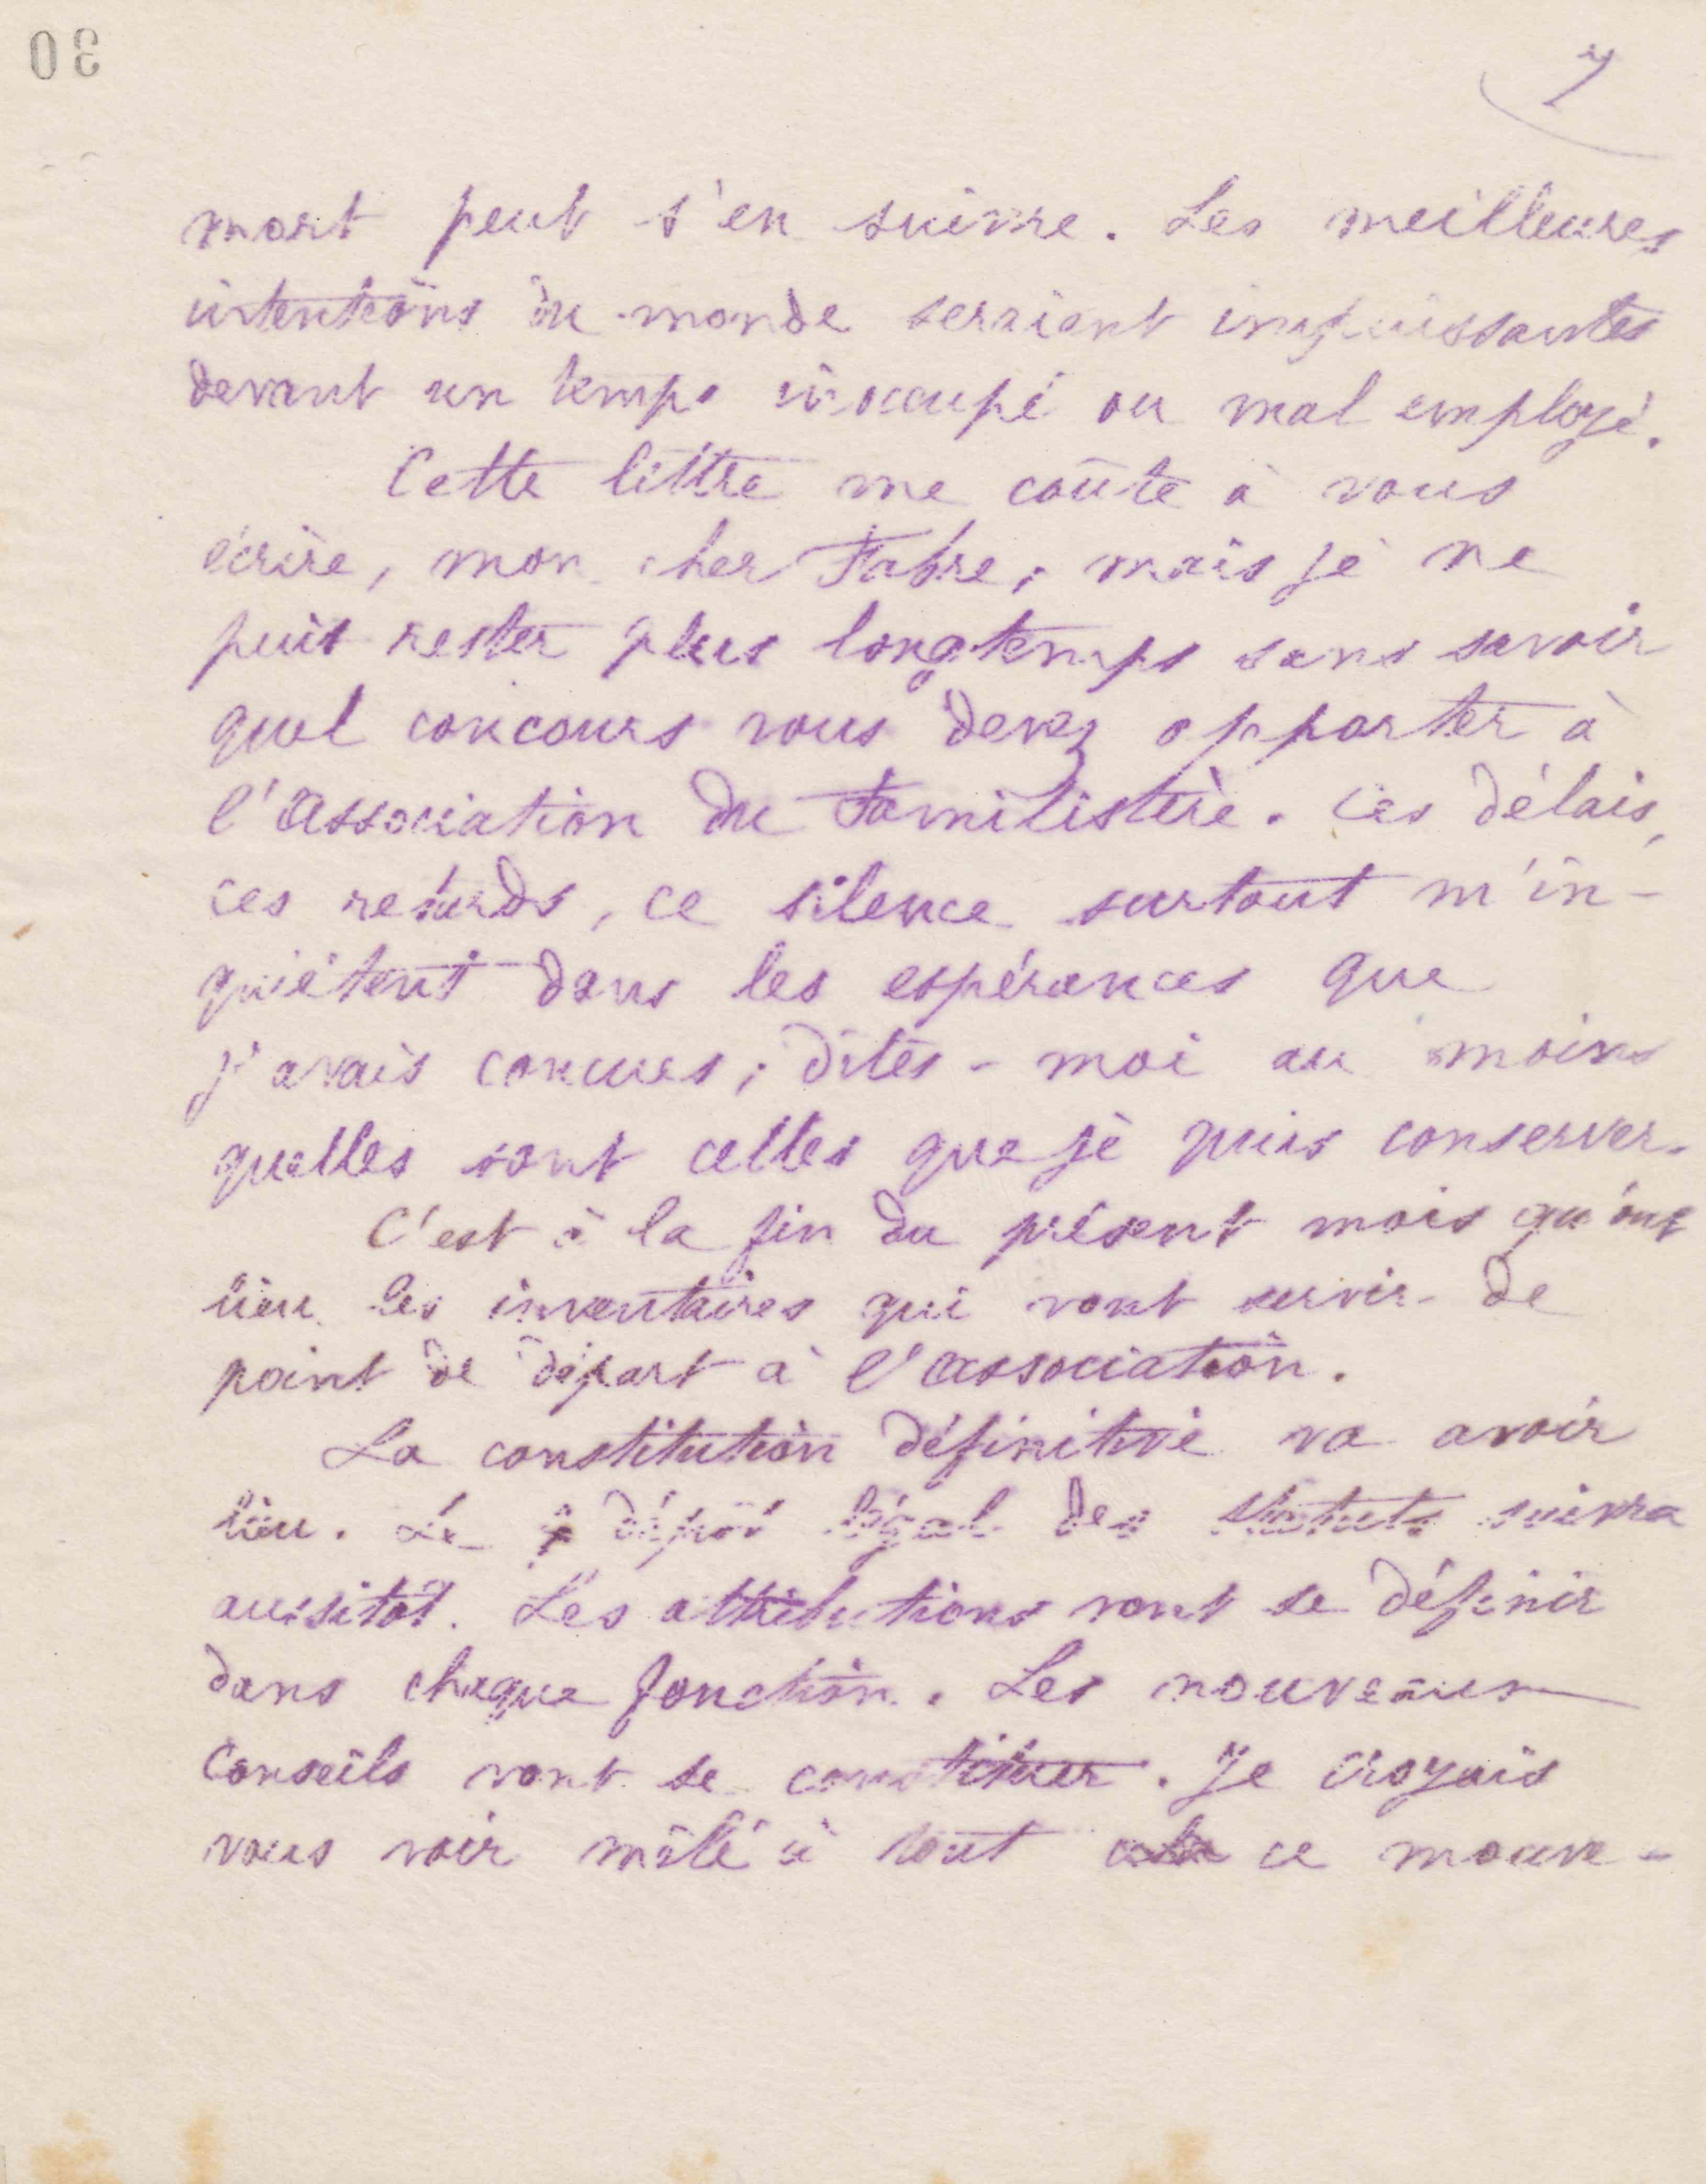 30
7
mort peut s'en suivre. Les meilleures
intentions du monde seraient impuissantes
devant un temps inoccupé ou mal employé.
Cette lettre me coûte à vous
écrire, mon cher Fabre, mais je ne
puis rester plus longtemps sans savoir
quel concours vous devez apporter à
l'association du Familistère. Ces délais,
ces retards, ce silence surtout m'in-
quiètent dans les espérances que
j'avais concues ; dites-moi au moins
quelles sont celles que je puis conserver.
C'est à la fin du présent mois qu'ont
lieu les inventaires qui vont servir de
point de départ à l'association.
La constitution définitive va avoir
lieu. Le dépôt légal des statuts suivra
aussitôt. Les attributions vont se définir
dans chaque fonction. Les nouveaux
Conseils vont se constituer. Je croyais
vous voir mêlé à tout ce mouve-